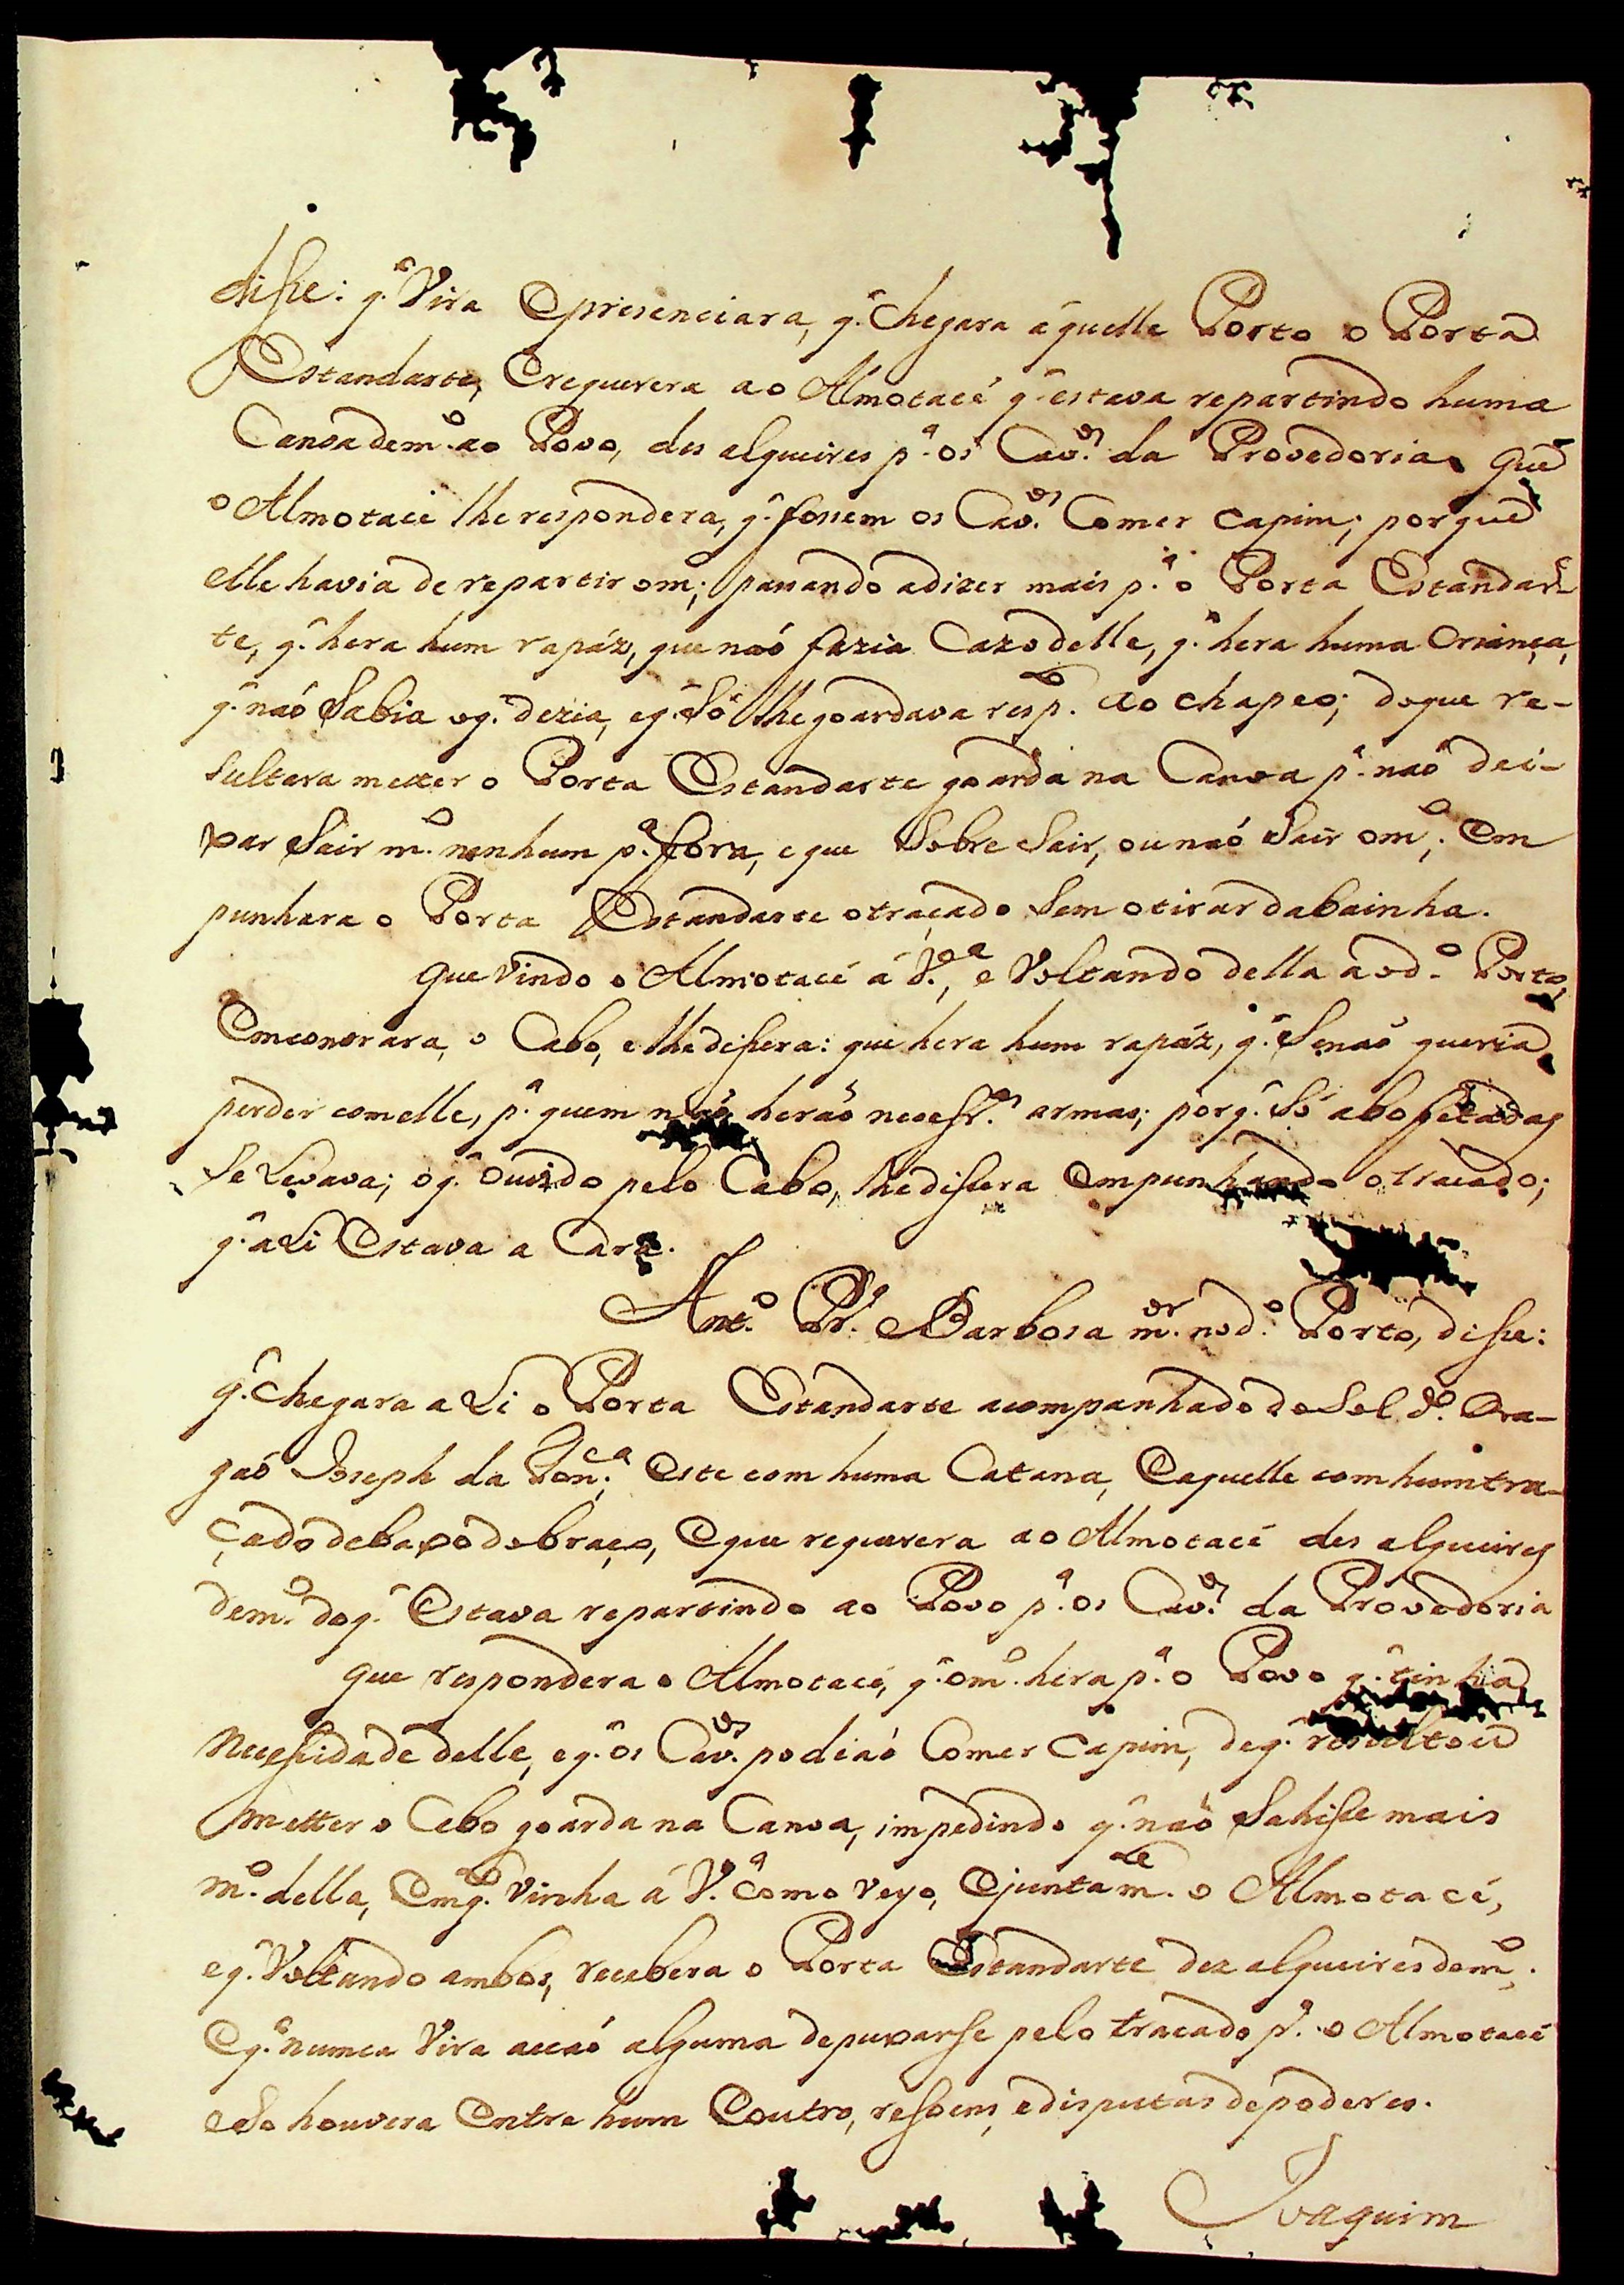 disse: q.' Vira E presenciara, q.' chegara aquelle Porto o Porta
Estandarte, E requerera ao Almotacé q.' estava repartindo huma
Canoa de m.º ao Povo, des alqueires p.ª os Cav.os da Provedoria. Que
o Almotace lhe respondera, q.' fossem os Cav.os Comer Capim; por que
elle havia de repartir o m.º; passando a dizer mais p.ª o Porta Estandar-
te, q.' hera hum rapáz, que naó fazia Cazo delle, q.' hera huma Criança,
q.' naó Sabia o q.' dezia, e q.' Só lhe goardava resp.to ao chapeo; do que re-
sultara metter o Porta Estandarte goarda na Canoa p.ª naó dei-
xar Sair m.º nenhum p.ª fora, e que Sobre Sair, ou naó Sair o m.º, Em
punhara o Porta Estandarte o traçado Sem o tirar da bainha.
Que Vindo o Almotacé á V.ª, e Voltando della ao d.º Porto,
Emcontrara, o Cabo, e lhe dissera: que hera hum rapáz, q.' Se naó queria
perder com elle, p.ª quem naó heraó necessr.as armas; porq.' Só a bofetadas
Se Levava; o q.' Ouvido pelo Cabo, lhe dissera Empunhando o traçado;
q.' ali Estava a Cara.
Ant.º Pr.ª Barbosa m.or no d.º Porto, disse:
q.' chegara a Li o Porta Estandarte acompanhado do Sol.do Dra-
gaó Joseph da Fon.ca, Este com huma Catana, E aquelle com hum tra-
çado debaxo do braço, E que requerera ao Almotacé des alqueires
de m.º do q.' Estava repartindo ao Povo p.ª os Cav.os da Provedoria
Que respondera o Almotacé, q.' o m.º hera p.ª o Povo q.' tinha
necessidade delle, e q.' os Cav.os podiaó Comer Capim, de q.' resultou
metter o Cabo goarda na Canoa, impedindo q.' naó Sahisse mais
m.º della, Em q.to Vinha á V.ª Como veyo, E juntam.te o Almotacé,
e q.' Voltando ambos, recebera o Porta Estandarte dez alqueires de m.º.
E q.' nunca Vira acçaó alguma de puxarse pelo traçado p.ª o Almotacé
e So houvera Entre hum E outro, resoens, e disputas de poderes.
Joaquim